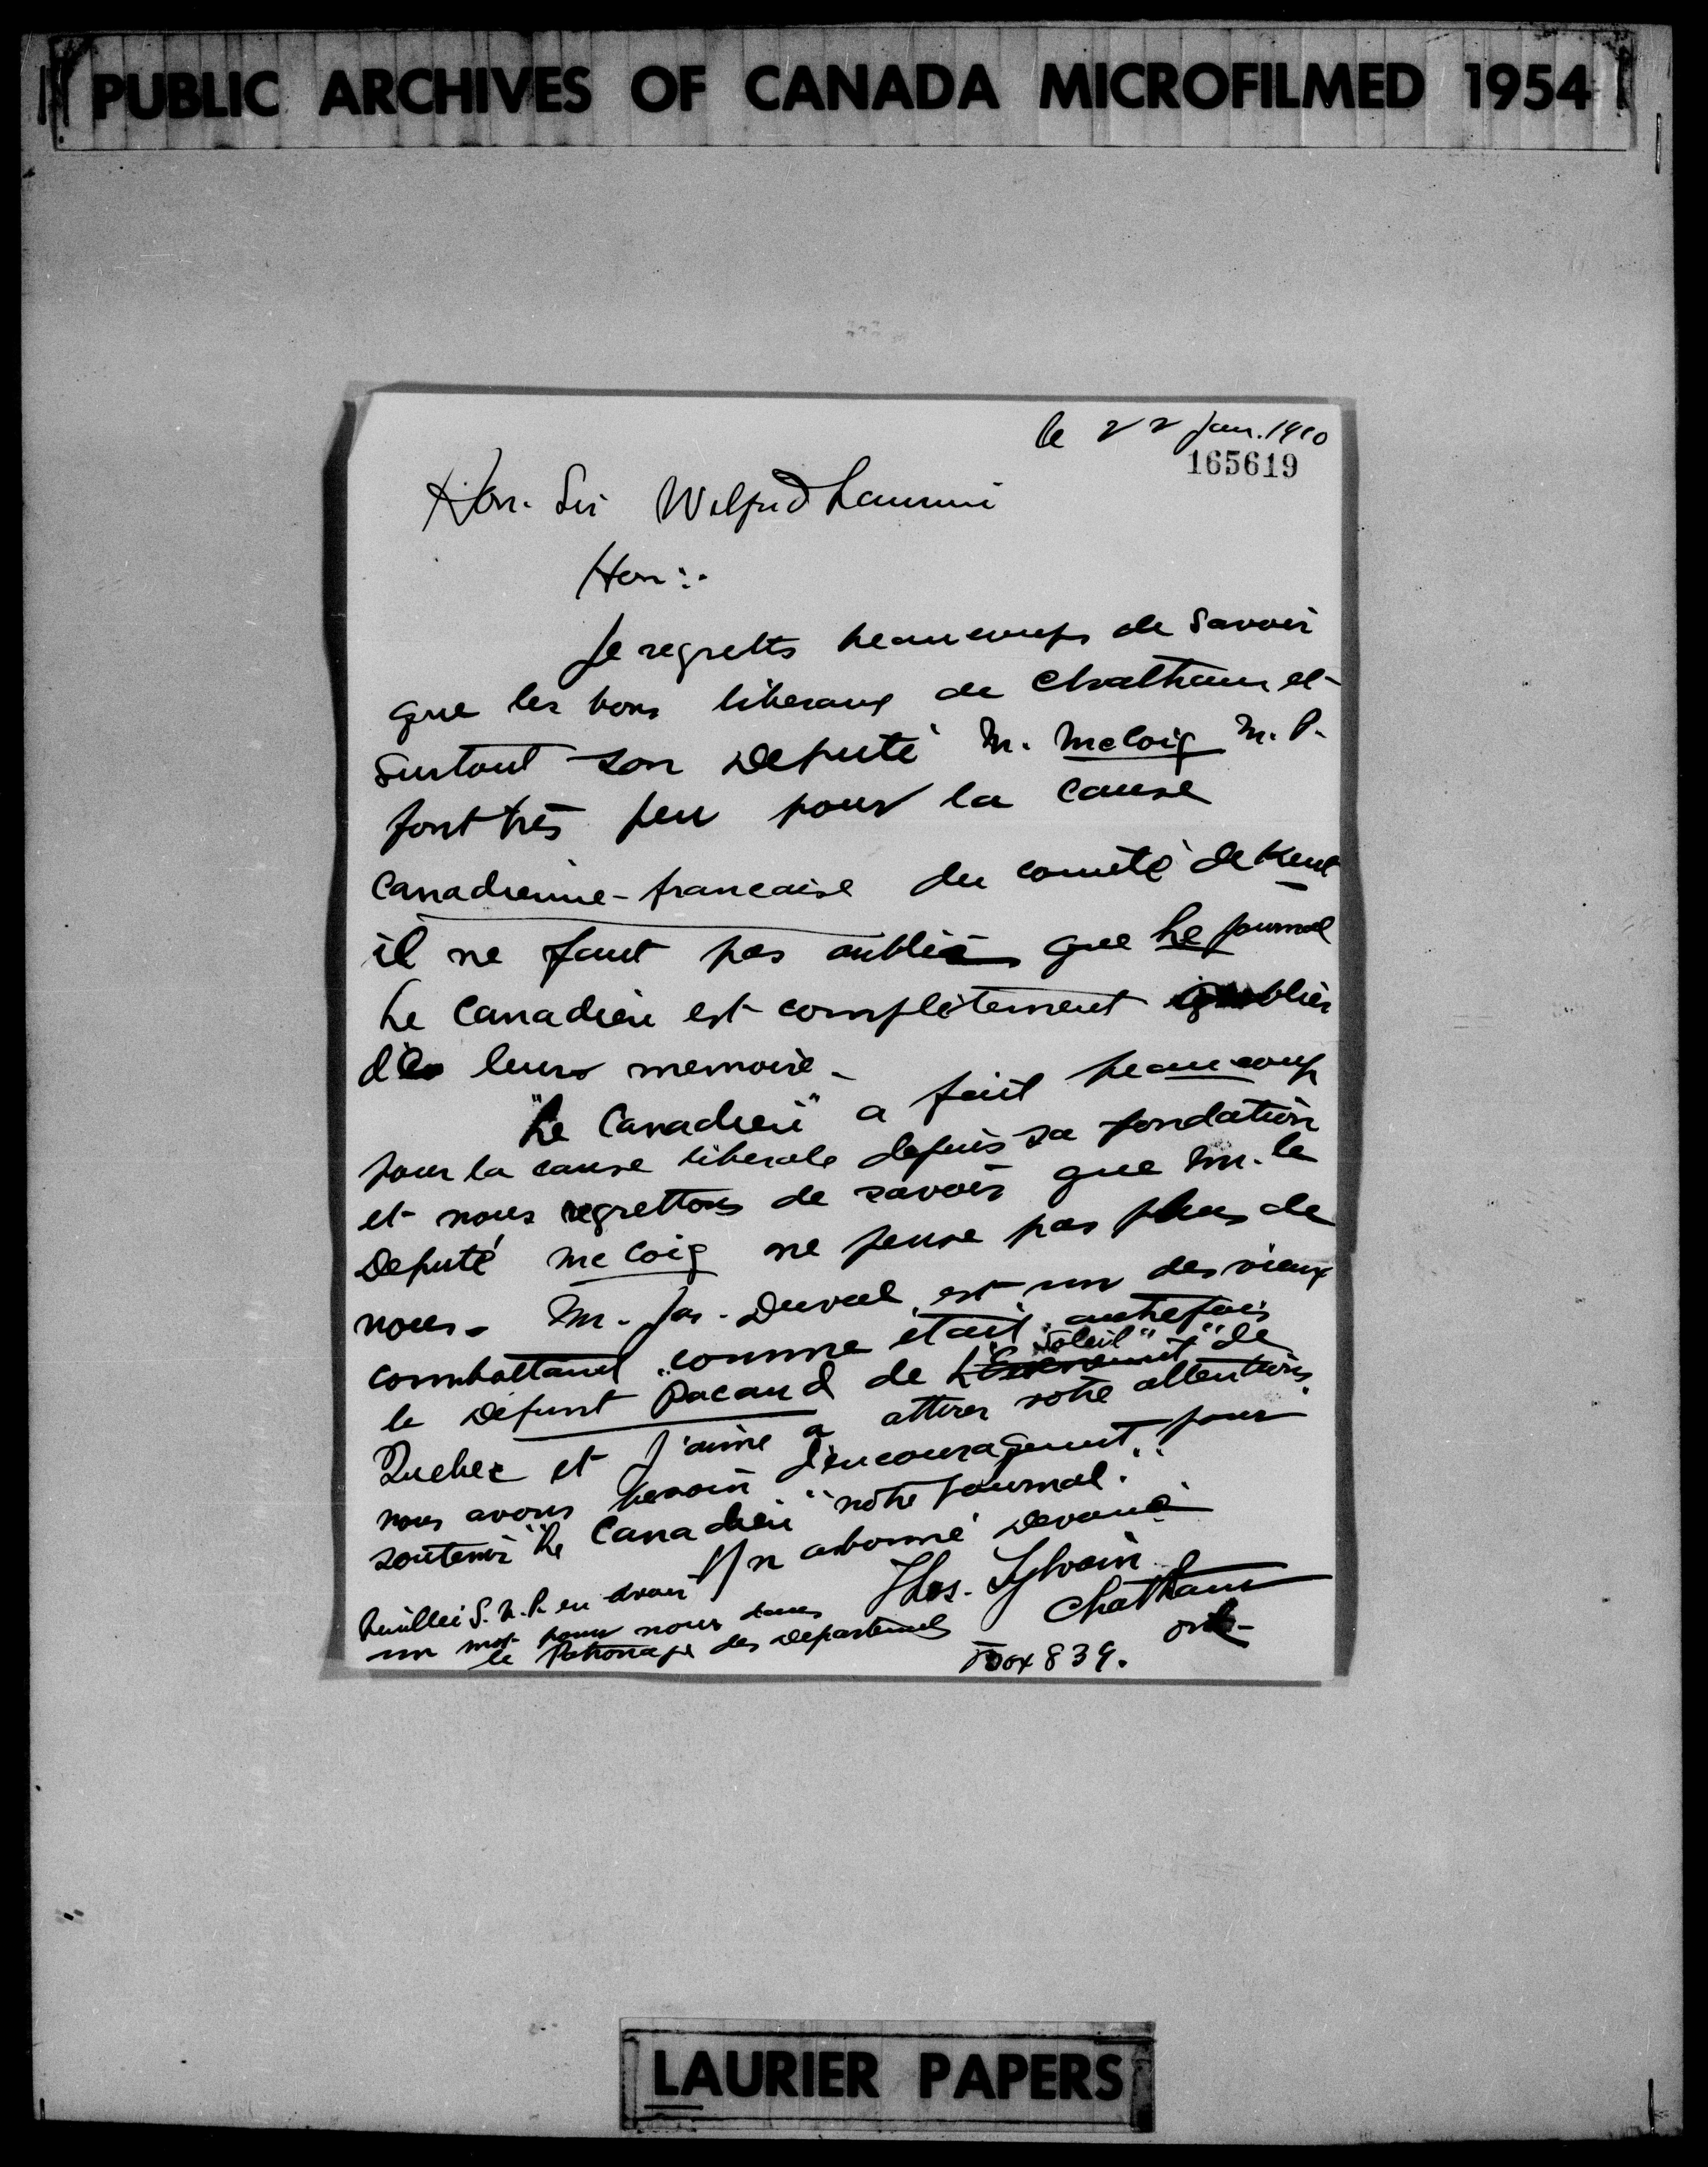 PUBLIC ARCHIVES OF CANADA MICROFILMED 1954
le 22 Jan. 1910
165619
Hon. Sir Wilfrid Laurier
Hon:.
Je regrette beaucoup de Savoir
que les bons liberaux de Chatham et
Surtout son Deputé M. McCoig M.P.
font très peu pour la Cause
Canadienne-francaise du comité de Kent
il ne faut pas oublier que Le journal
Le Canadien est complètement oublier
de leurs memoire -
"Le Canadien" a fait beaucoup
pour la cause liberale depuis sa fondation
et nous regrettons de savoir que Mr. le
Deputé McCoig ne pense pas plus de
nous - M. Jas. Duval est un des vieux
combattant comme était autrefois
le Défunt Pacaud de L'Evenement "Soleil" de
Quebec et J'aime a attirer votre attention.
nous avons besoin d'encouragement pour
soutenir "Le Canadien" notre Journal.
Un abonné Devoué
Thos. Sylvain
Chatham
Ont-
Box 839.
Veuillez S.V.P. en avoir
un mot pour nous dans
le Patronage des Departements
LAURIER PAPERS